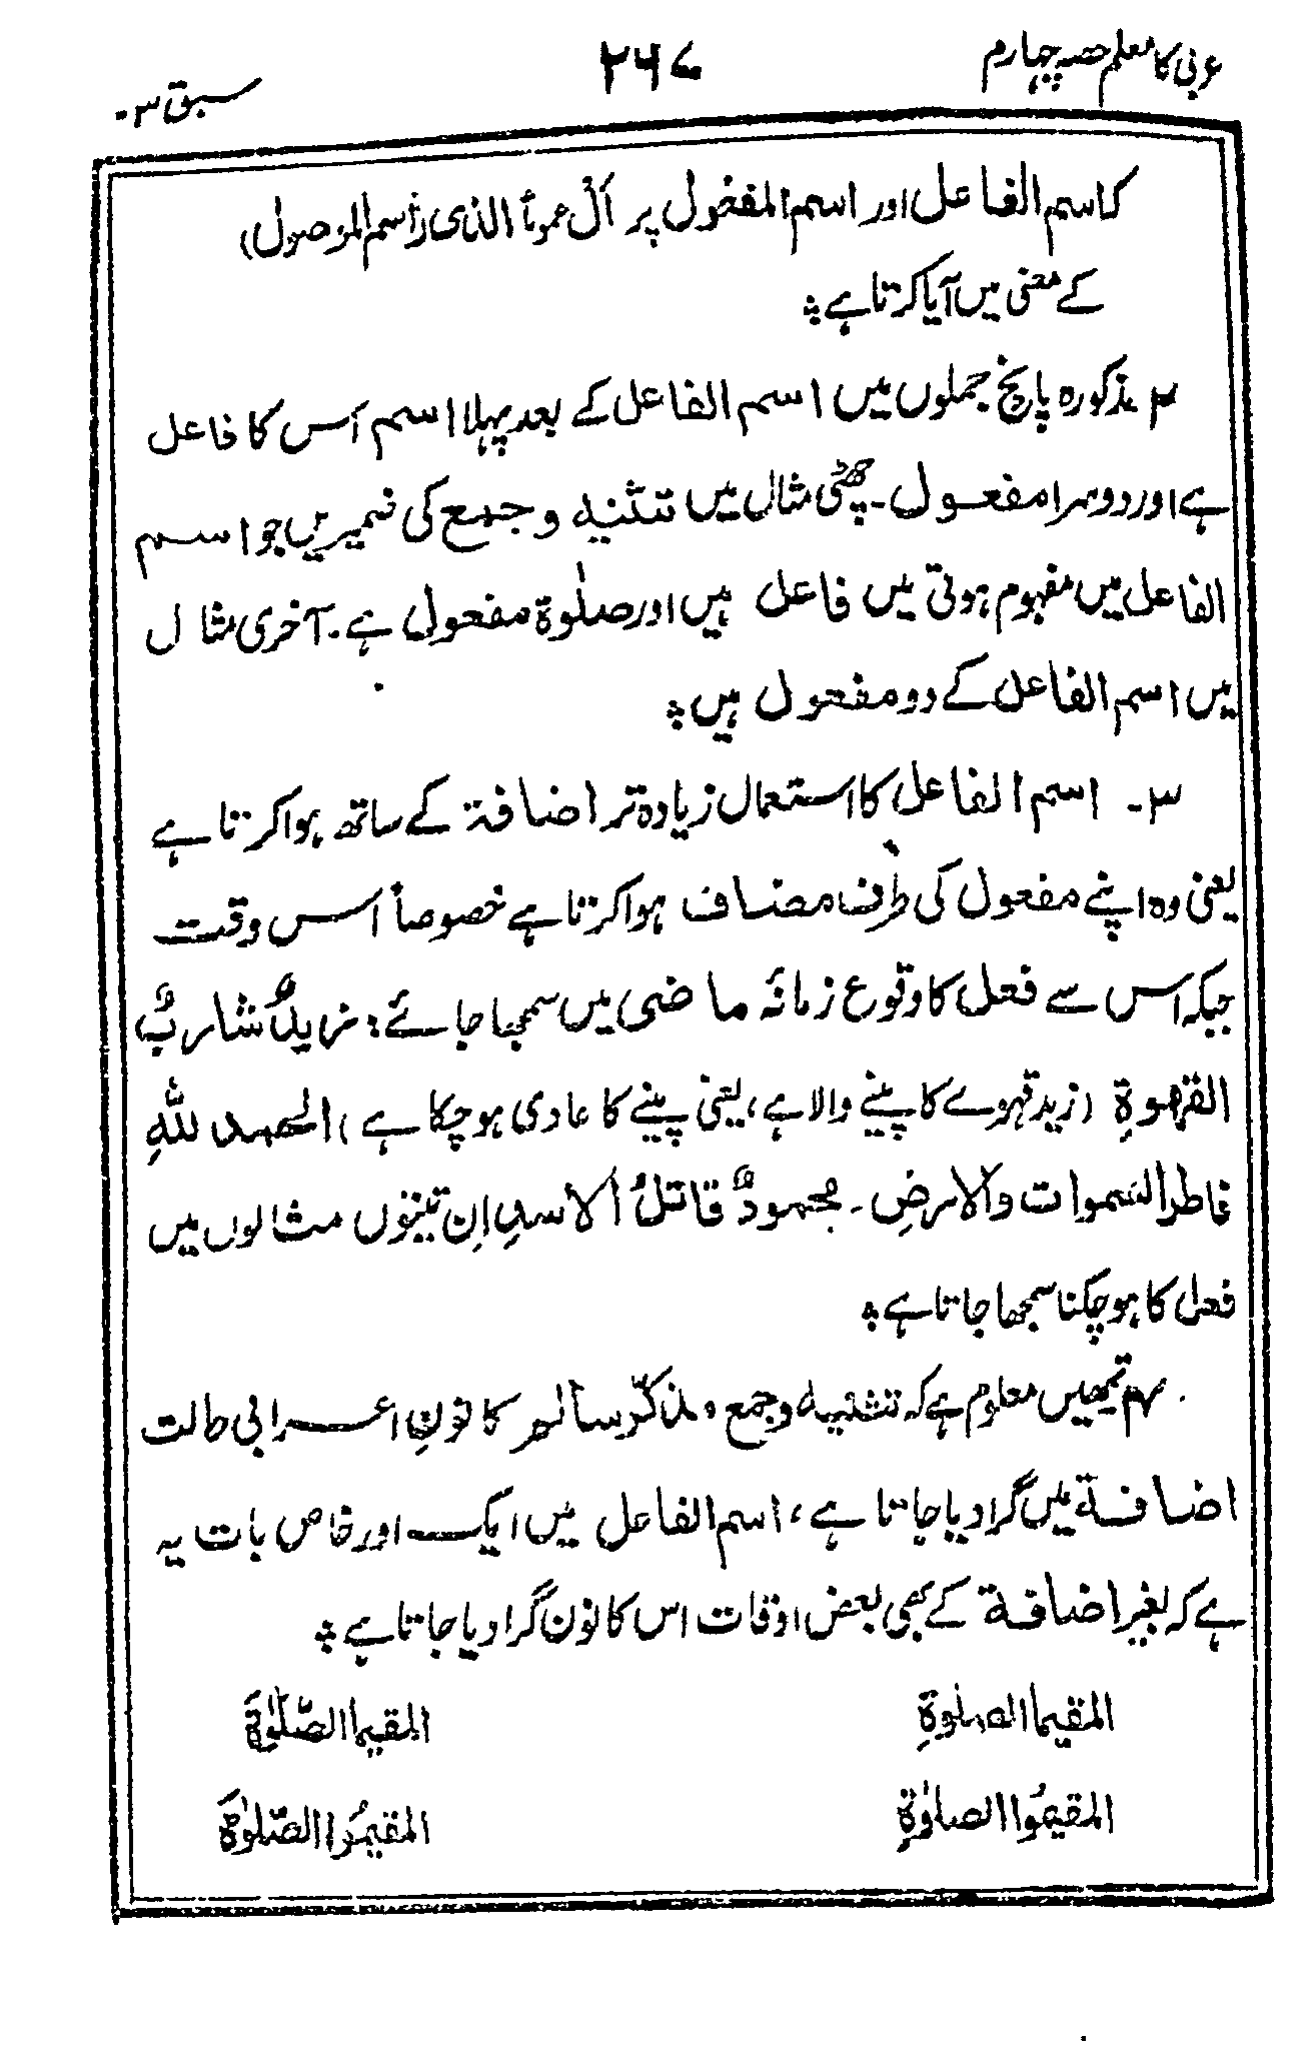 عربی کا معلم حصہ چہارم
۲۶۷
سبق ۳۰
کہ اسم الفاعل اور اسم المفعول پر اَلْ عموماً الذی (اسم الموصول)
کے معنی میں آیا کرتا ہے ؞
۲ مذکورہ پانچ جملوں میں اسم الفاعل کے بعد پہلا اسم اُس کا فاعل
ہے اور دوسرا مفعول۔ چھٹی مثال میں تثنیہ و جمع کی ضمیریں جو اسم
الفاعل میں مفہوم ہوتی ہیں فاعل ہیں اور صلٰوۃ مفعول ہے۔ آخری مثال
میں اسم الفاعل کے دو مفعول ہیں ؞
۳۔ اسم الفاعل کا استعمال زیادہ تر اضافۃ کے ساتھ ہوا کرتا ہے
یعنی وہ اپنے مفعول کی طرف مضاف ہوا کرتا ہے خصوصاً اس وقت
جبکہ اس سے فعل کا وقوع زمانۂ ماضی میں سمجھا جائے: زیدٌ شاربُ
القهوةِ (زید قہوے کا پینے والا ہے، یعنی پینے کا عادی ہو چکا ہے) الحمد للّٰهِ
فاطر السّموات والارضِ۔ محمودٌ قاتلُ الاسدِ اِن تینوں مثالوں میں
فعل کا ہو چکنا سمجھا جاتا ہے ؞
۴ تمہیں معلوم ہے کہ تثنیہ و جمع مذکّر سالم کا نونِ اعرابی حالت
اضافۃ میں گرا دیا جاتا ہے، اسم الفاعل میں ایک اور خاص بات یہ
ہے کہ بغیر اضافۃ کے بھی بعض اوقات اس کا نون گرا دیا جاتا ہے ؞
المقیما الصلوةِ المقیما الصّلٰوةَ
المقیمُوا الصلٰوةِ المقیمُوا الصّلٰوةَ